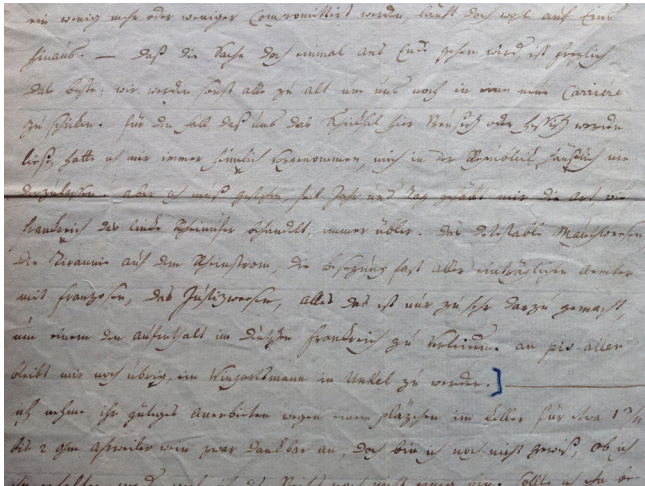 ein wenig mehr oder weniger Compromittirt werden, läuft doch wol auf Eins
hinaus. — daß die Sache doch einmal ans End gehen wird ist freylich
das beste; wir werden sonst alle zu alt um uns noch in eine neue Carriere
zu schicken. für den fall daß uns das Schicksal hier oder werden
ließe, hatte ich mir immer heimlich vorgenommen, mich in der Republick häußlich nie
derzulassen. aber ich muß gestehen, seit Jahr und Tag gefällt mir die art, wie
frankreich das linke Rheinufer behandelt, immer übler. das detestable Mauthwesen
die Tirannie auf dem Rheinstrom, die besezung fast aller einträglichen aemter
mit franzosen, das Justizwesen, alles das ist nur zu sehr darzu gemacht,
um einem den aufenthalt im frankreich zu verleiden. au pis aller
bleibt mir noch übrig, ein Wingartsmann in Unkel zu werden.]
ich nehme ihr gütiges anerbieten wegen einem pläzchen im Keller für etwa 1
bis 2 ohm ahrweiler wein zwar dankbar an, doch bin ich noch nicht gewiß, ob ich